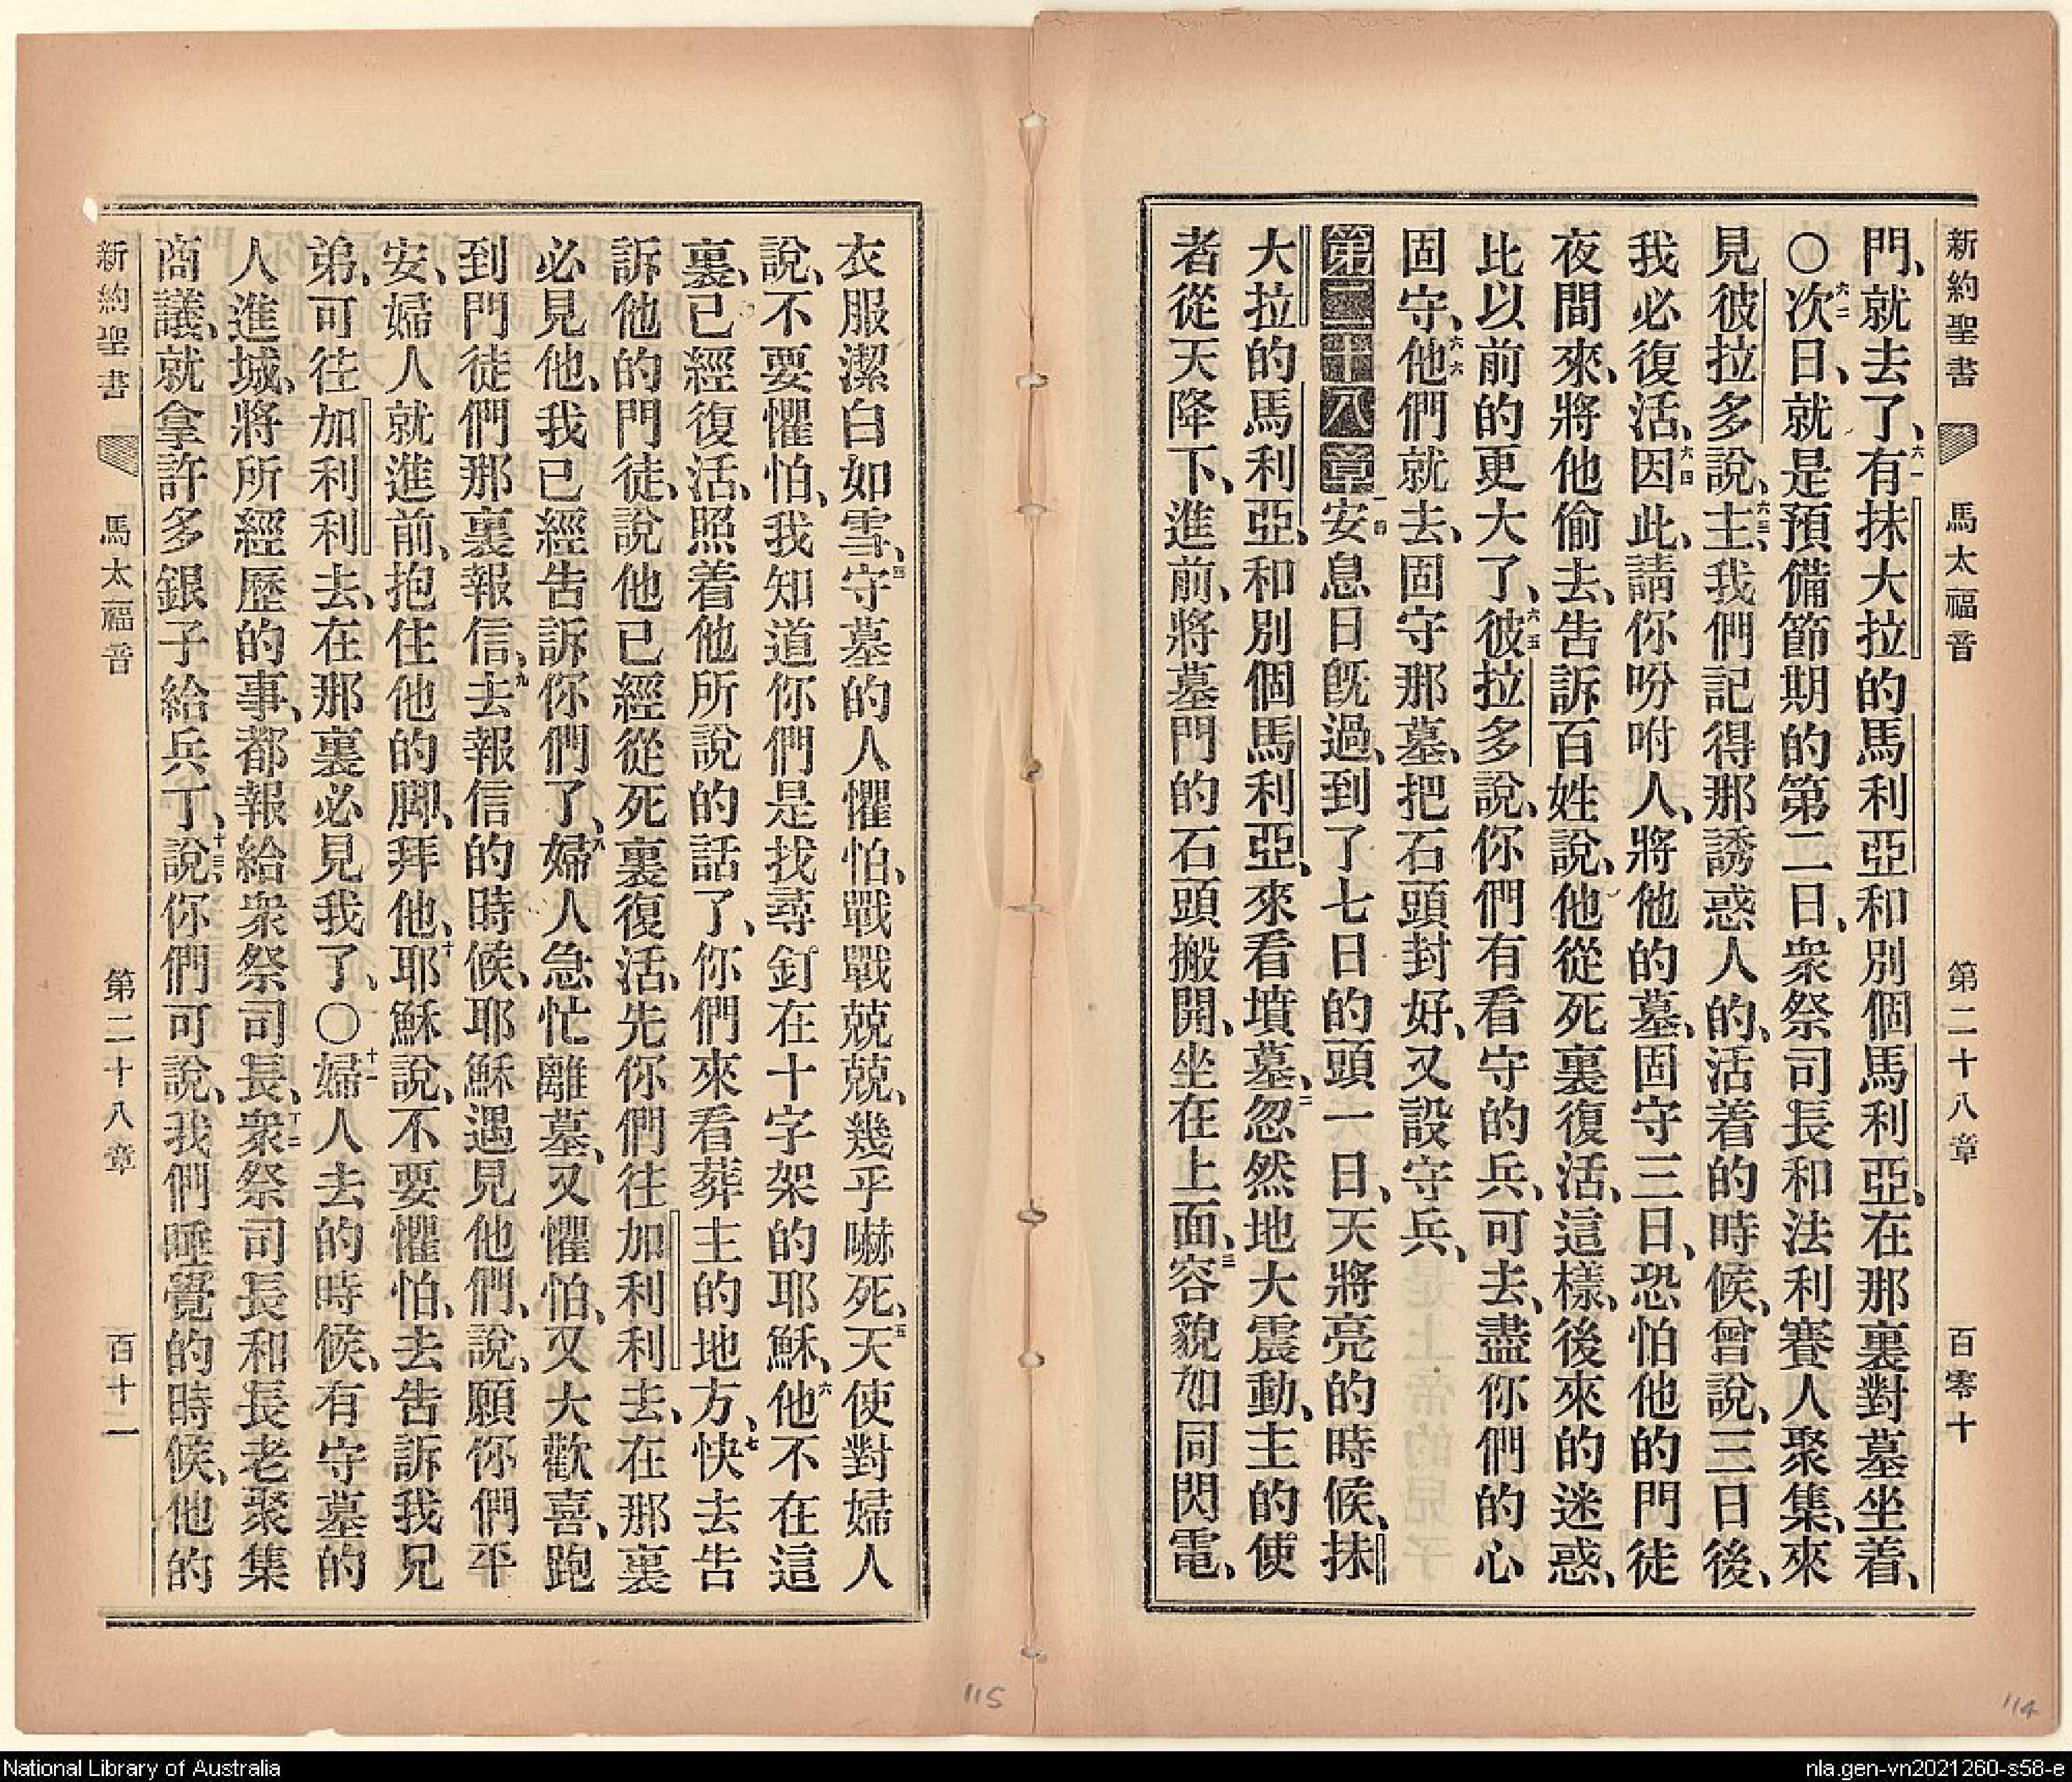 新約聖書 馬太福音 第二十八章 百零十
門、就去了、六一有抹大拉的馬利亞和別個馬利亞、在那裏對墓坐着、
〇六二次日、就是預備節期的第二日、衆祭司長和法利賽人聚集、來
見彼拉多說、六三主、我們記得那誘惑人的、活着的時候、曾說、三日後、
我必復活、六四因此、請你吩咐人、將他的墓、固守三日、恐怕他的門徒
夜間來、將他偷去、告訴百姓說、他從死裏復活、這樣、後來的迷惑、
比以前的更大了、六五彼拉多說、你們有看守的兵、可去、盡你們的心
固守、六六他們就去、固守那墓、把石頭封好、又設守兵、
第二十八章一安息日旣過、到了七日的頭一日、天將亮的時候、抹
大拉的馬利亞、和別個馬利亞、來看墳墓、二忽然地大震動、主的使
者從天降下、進前、將墓門的石頭搬開、坐在上面、三容貌如同閃電、
衣服潔白如雪、四守墓的人懼怕、戰戰兢兢、幾乎嚇死、五天使對婦人
說、不要懼怕、我知道你們是找尋釘在十字架的耶穌、六他不在這
裏、已經復活、照着他所說的話了、你們來看葬主的地方、七快去告
訴他的門徒、說他已經從死裏復活、先你們往加利利去、在那裏
必見他、我已經告訴你們了、八婦人急忙離墓、又懼怕、又大歡喜、跑
到門徒們那裏報信、九去報信的時候、耶穌遇見他們、說、願你們平
安、婦人就進前、抱住他的脚、拜他、十耶穌說、不要懼怕、去告訴我兄
弟、可往加利利去、在那裏必見我了、〇十一婦人去的時候、有守墓的
人進城、將所經歷的事、都報給衆祭司長、十二衆祭司長和長老聚集
商議、就拿許多銀子給兵丁、十三說、你們可說、我們睡覺的時候、他的
新約聖書 馬太福音 第二十八章 百十一
115
114
National Library of Australia
nla.gen-vn2021260-s58-e